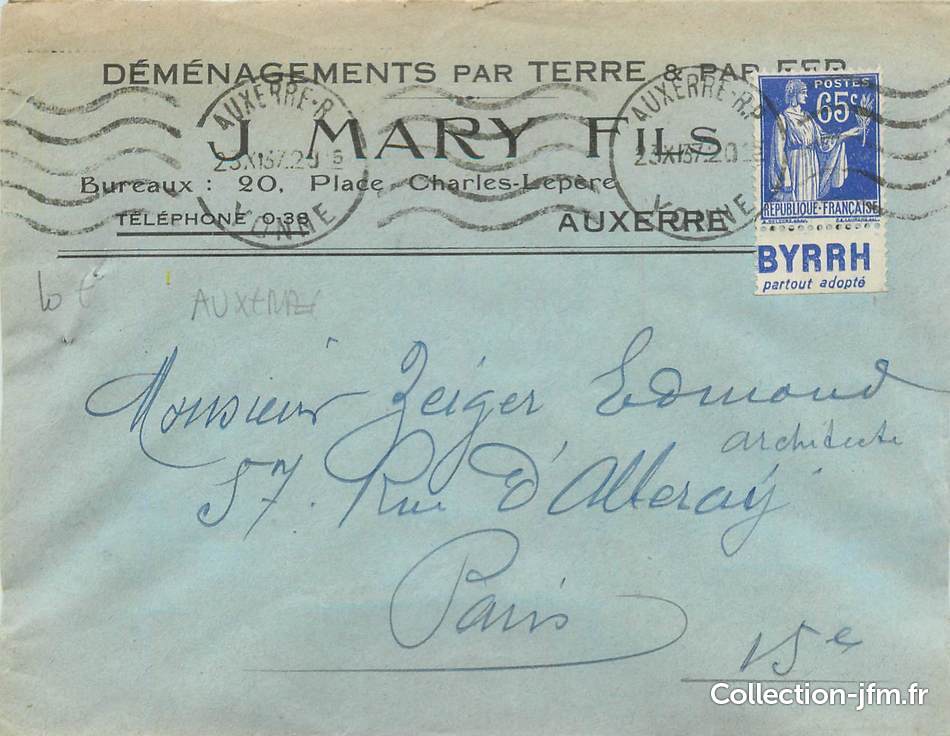 DÉMÉNAGEMENTS PAR TERRE & PAR FER
J. MARY FILS
Bureaux : 20, Place Charles-Lepère
TÉLÉPHONE 0-38
AUXERRE
AUXERRE-R.P
23XI37.20
YONNE
AUXERRE-R.P
23XI37.20
YONNE
POSTES
65c
RÉPUBLIQUE-FRANÇAISE
BYRRH
partout adopté
AUXERRE
Monsieur Zeiger Edmond
architecte
57. Rue d'Alleray
Paris
15e
Collection-jfm.fr